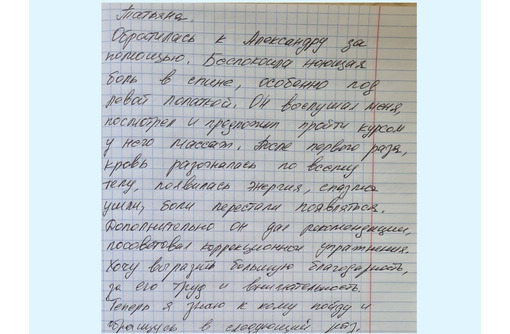 Татьяна.
Обратилась к Александру за
помощью. Беспокоила ноющая
боль в спине, особенно под
левой лопаткой. Он выслушал меня,
посмотрел и предложил пройти курсом
у него массаж. После первого раза,
кровь разогналась по всему
телу, появилась энергия, спазмы
ушли, боли перестали появляться.
Дополнительно он дал рекомендации,
посоветовал коррекционные упражнения.
Хочу выразить большую благодарность,
за его труд и внимательность.
Теперь я знаю к кому пойду и
обращусь в следующий раз.